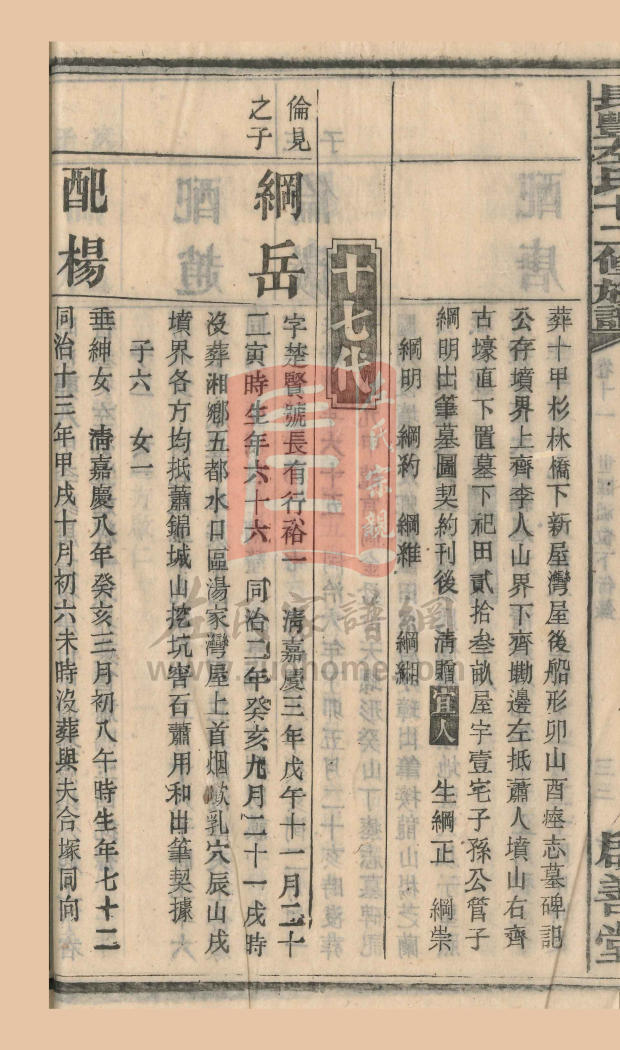 長豐左氏十二修族譜
卷十一
三三
啟善堂
葬十甲杉林橋下新屋灣屋後船形卯山酉瘞志墓碑記
公存墳界上齊李人山界下齊勘邊左抵蕭人墳山右齊
古壕直下置墓下祀田貳拾叁畝屋宇壹宅子孫公管子
綱明出筆墓圖契約刊後　清贈宜人　生綱正　綱崇
綱明　綱豹　綱維　綱紃
十七代
倫見
之子
綱岳
字楚賢號長有行裕一　清嘉慶三年戊午十一月二十
二寅時生年六十六　同治二年癸亥九月二十一戌時
沒葬湘鄉五都水口區湯家灣屋上首烟墩乳穴辰山戌
墳界各方均抵蕭錦城山挖坑害石蕭用和出筆契據
子六　女一
配楊
垂紳女　清嘉慶八年癸亥三月初八午時生年七十二
同治十三年甲戌十月初六未時沒葬與夫合塚同向
左氏家譜網
www.zuoshome.com